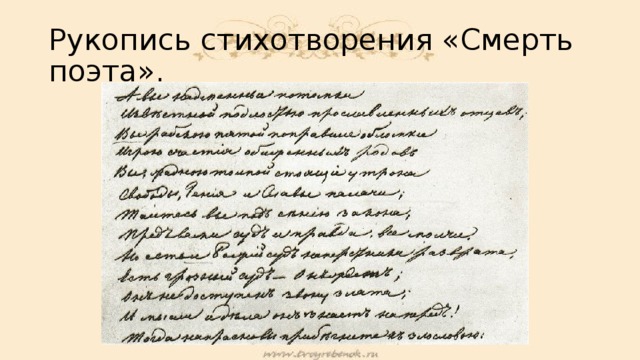 Рукопись стихотворения «Смерть
поэта».
А вы надменные потомки
Извѣстной подлостью прославленныхъ отцевъ,
Вы рабскою пятой поправшие обломки
Игрою счастія обиженныхъ родовъ
Вы жадною толпой стоящіе у трона
Свободы, Генія и Славы палачи;
Таитесь вы подъ сѣнію закона,
Предъ вами судъ и правда, все молчи,
Но есть и Божій судъ наперсники разврата,
Есть грозный судъ —
Онъ не доступенъ звону злата;
И мысли и дѣла онъ знаетъ напредъ!
Тогда напрасно вы прибѣгните къ злословью:
www.tvoyrebenok.ru